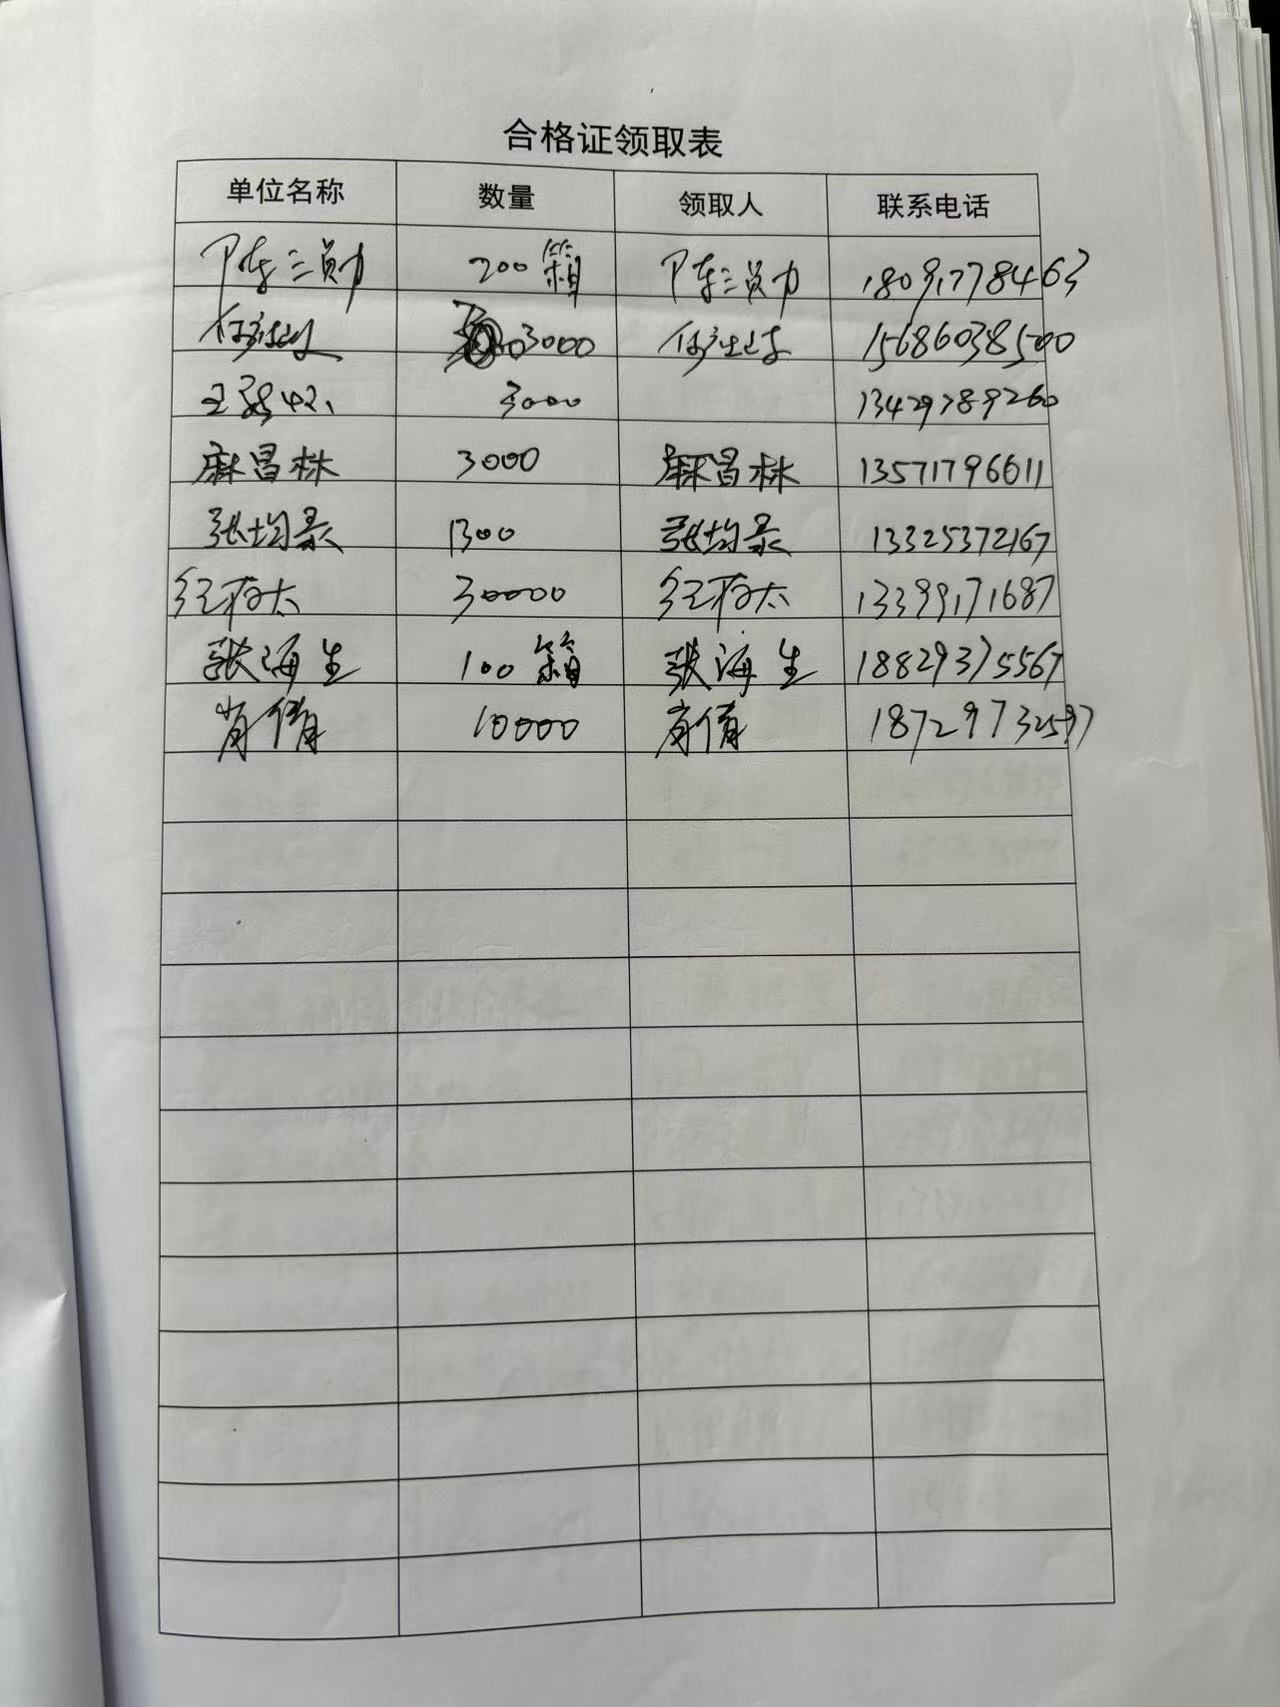 合格证领取表
单位名称 数量 领取人 联系电话
陈三勋 200箱 陈三勋 18091778463
3000 15686038500
3000 13429789260
麻昌林 3000 麻昌林 13571796611
张均录 1300 张均录 13325372167
30000 13399171687
张海生 100箱 张海生 18829375567
肖倩 10000 肖倩 18729732597